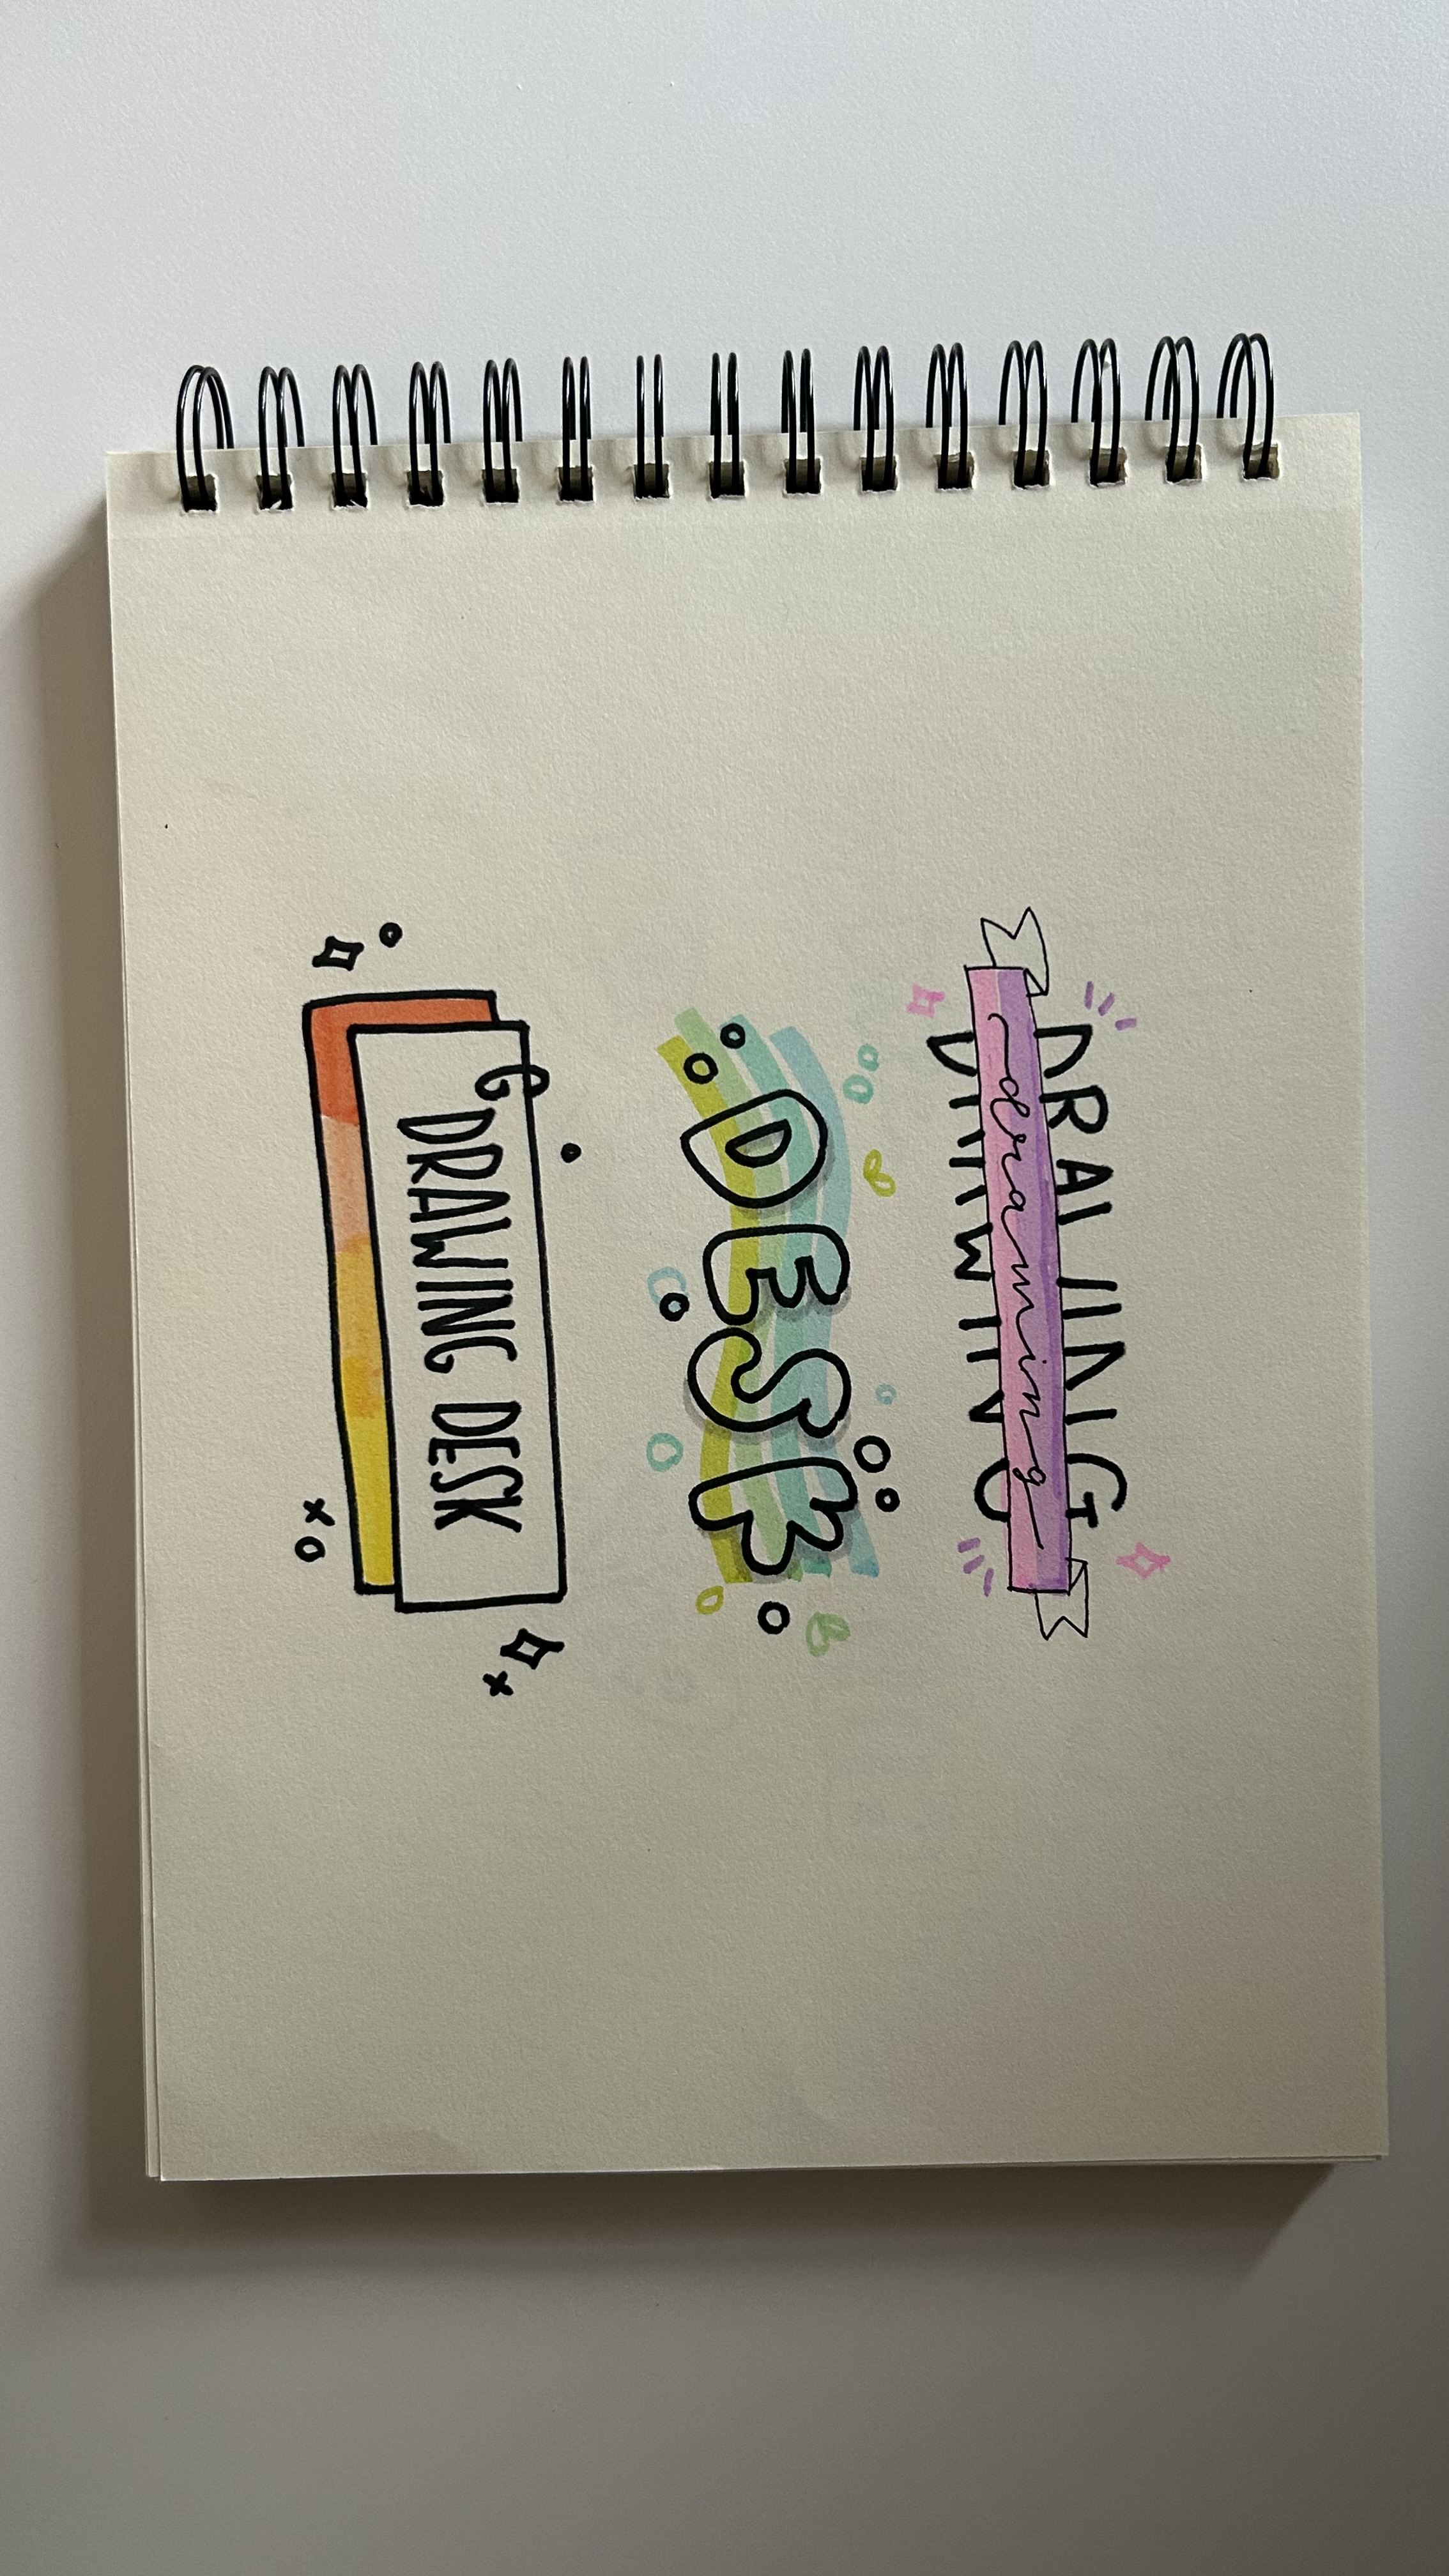 DRAWING
drawing
DESK
DRAWING DESK